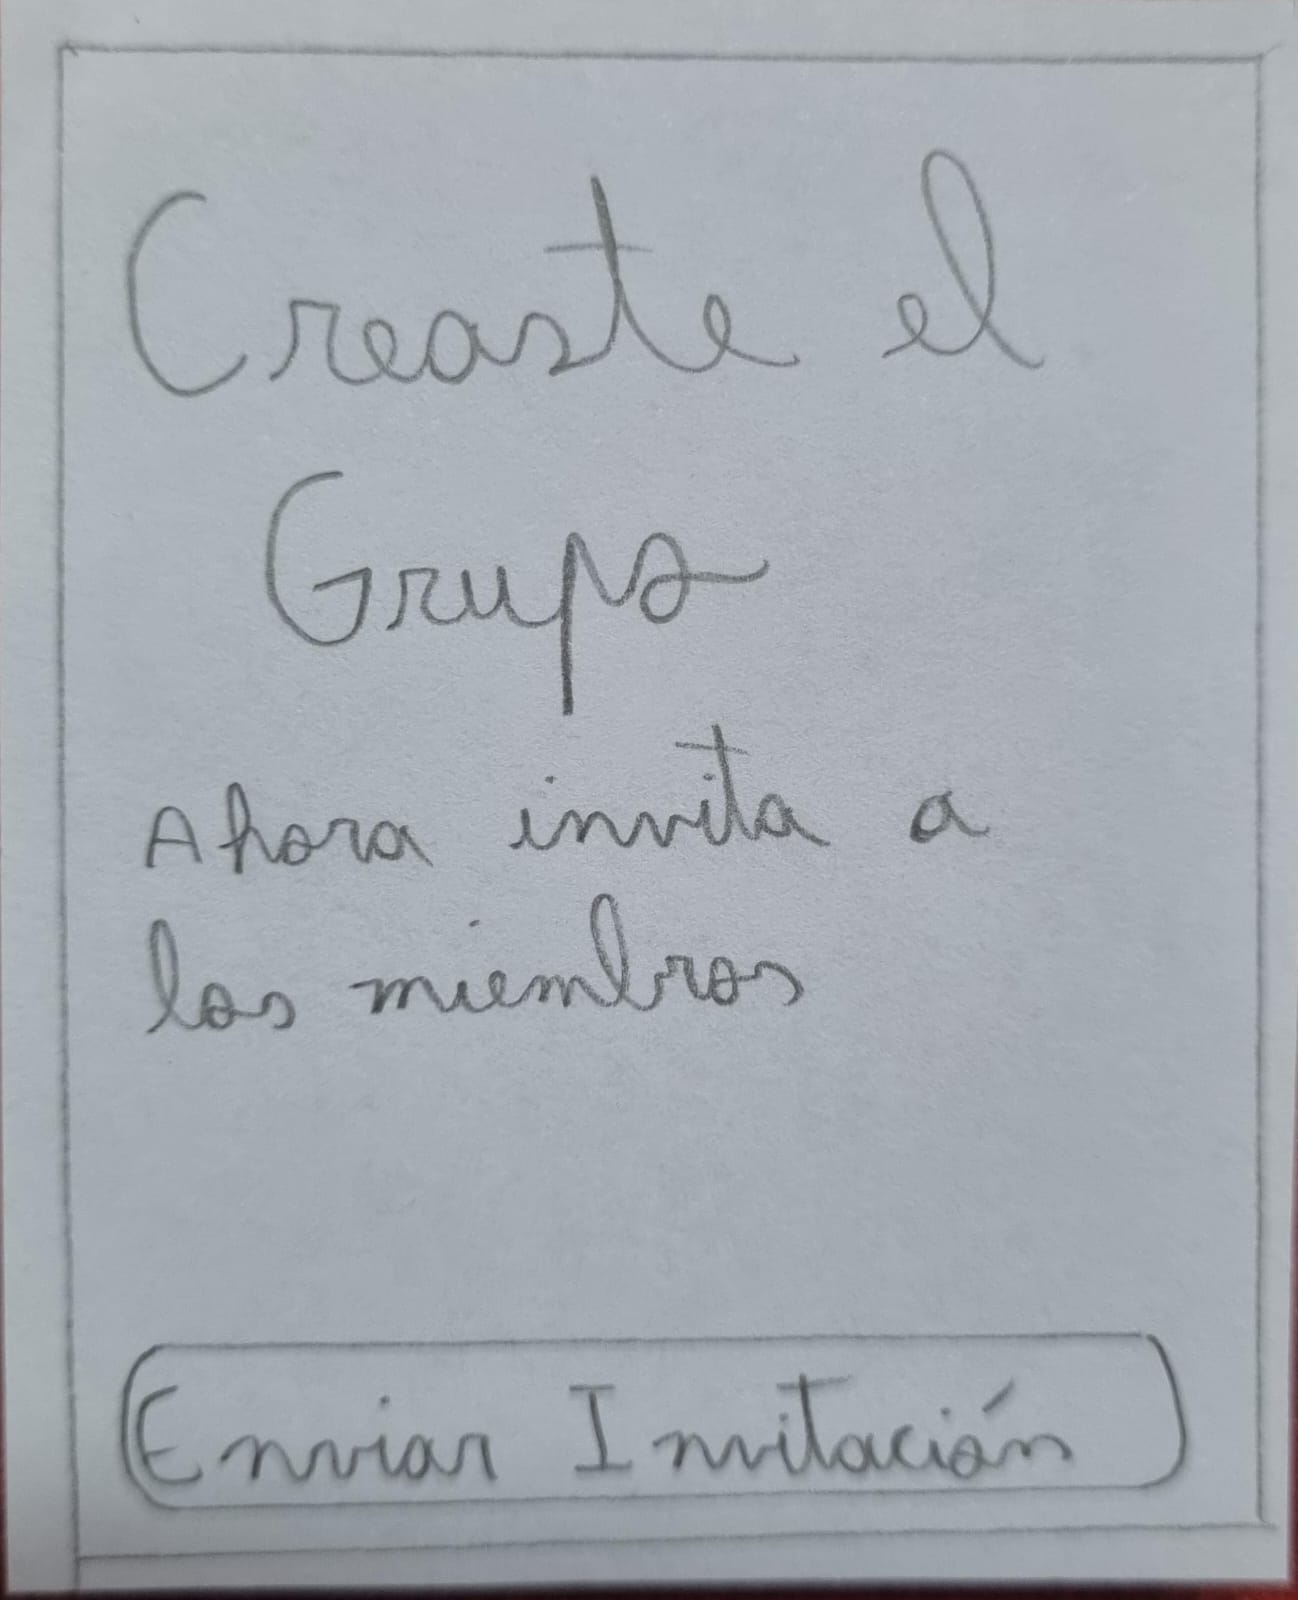 Creaste el
Grupo
Ahora invita a
los miembros
Enviar Invitación